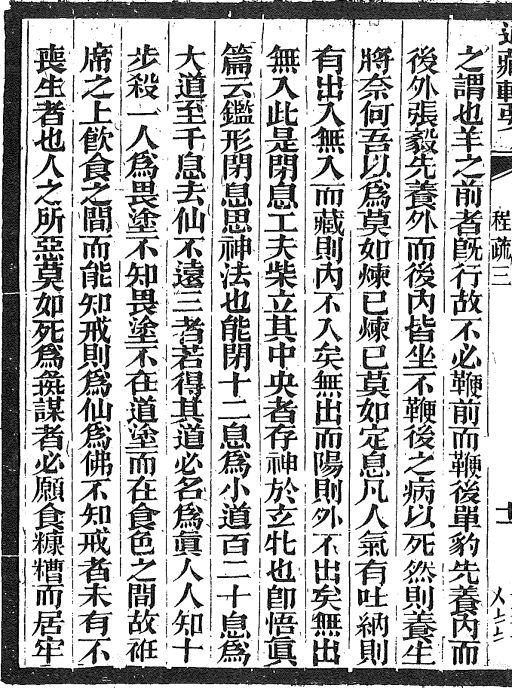 道藏輯要
程疏三
十
之謂也羊之前者旣行故不必鞭前而鞭後單豹先養內而
後外張毅先養外而後內皆坐不鞭後之病以死然則養生
將奈何吾以爲莫如煉已煉已莫如定息凡人氣有吐納則
有出入無入而藏則內不入矣無出而陽則外不出矣無出
無入此是閉息工夫柴立其中央者存神於玄牝也卽悟眞
篇云鑑形閉息思神法也能閉十二息爲小道百二十息爲
大道至千息去仙不遠三者若得其道必名爲眞人人知十
步殺一人爲畏塗不知畏塗不在道塗而在食色之間故袵
席之上飮食之間而能知戒則爲仙爲佛不知戒者未有不
喪生者也人之所惡莫如死爲彘謀者必願食糠糟而居牢